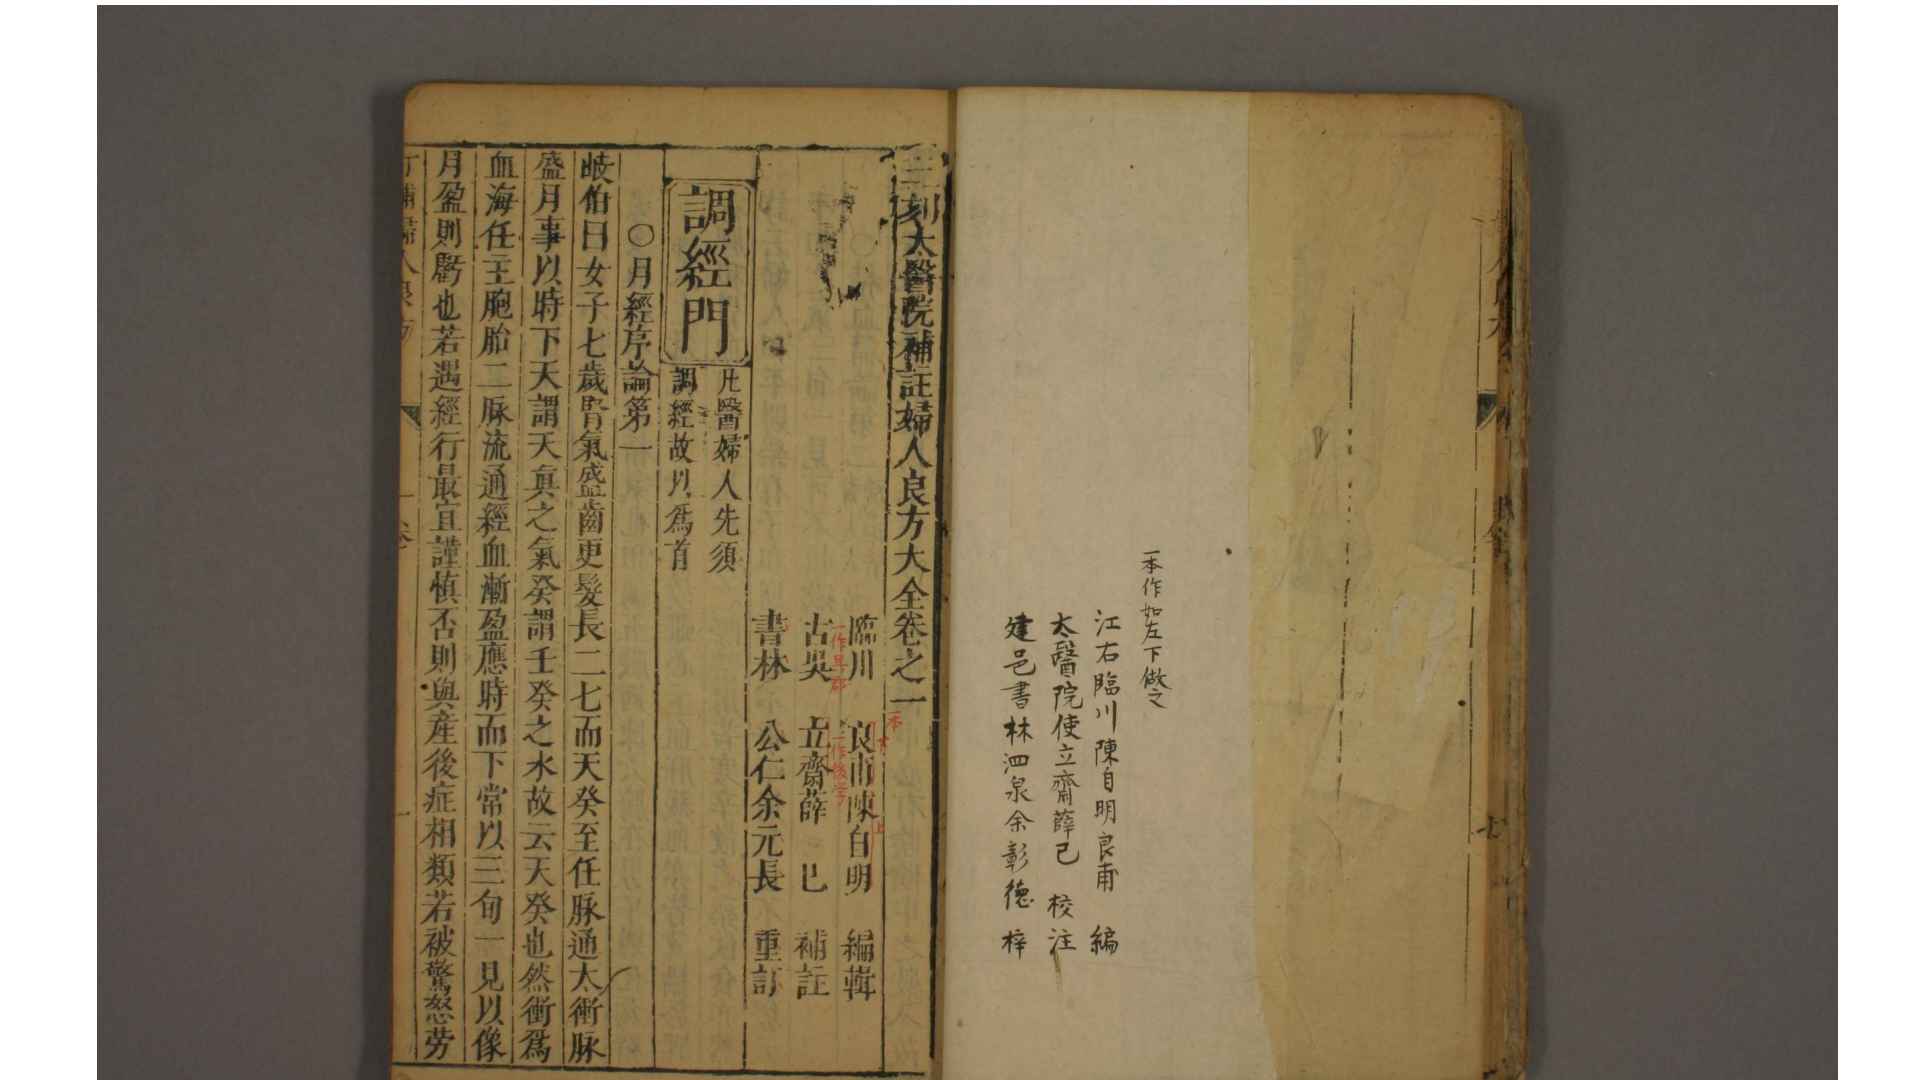 一本作如左下倣之
江右臨川陳自明良甫 編
太醫院使立齋薛己 校注
建邑書林泗泉余彰德 梓
三刻太醫院補註婦人良方大全卷之一
臨川 良甫陳自明 編輯
古吳 立齋薛 已 補註
書林 公仁余元長 重訂
一本
一作後學
調經門
凡醫婦人先須
調經故以爲首
○月經序論第一
岐伯曰女子七歲腎氣盛齒更髮長二七而天癸至任脉通太衝脉
盛月事以時下天謂天真之氣癸謂壬癸之水故云天癸也然衝爲
血海任主胞胎二脉流通經血漸盈應時而下常以三旬一見以像
月盈則虧也若遇經行最宜謹慎否則與產後症相類若被驚怒勞